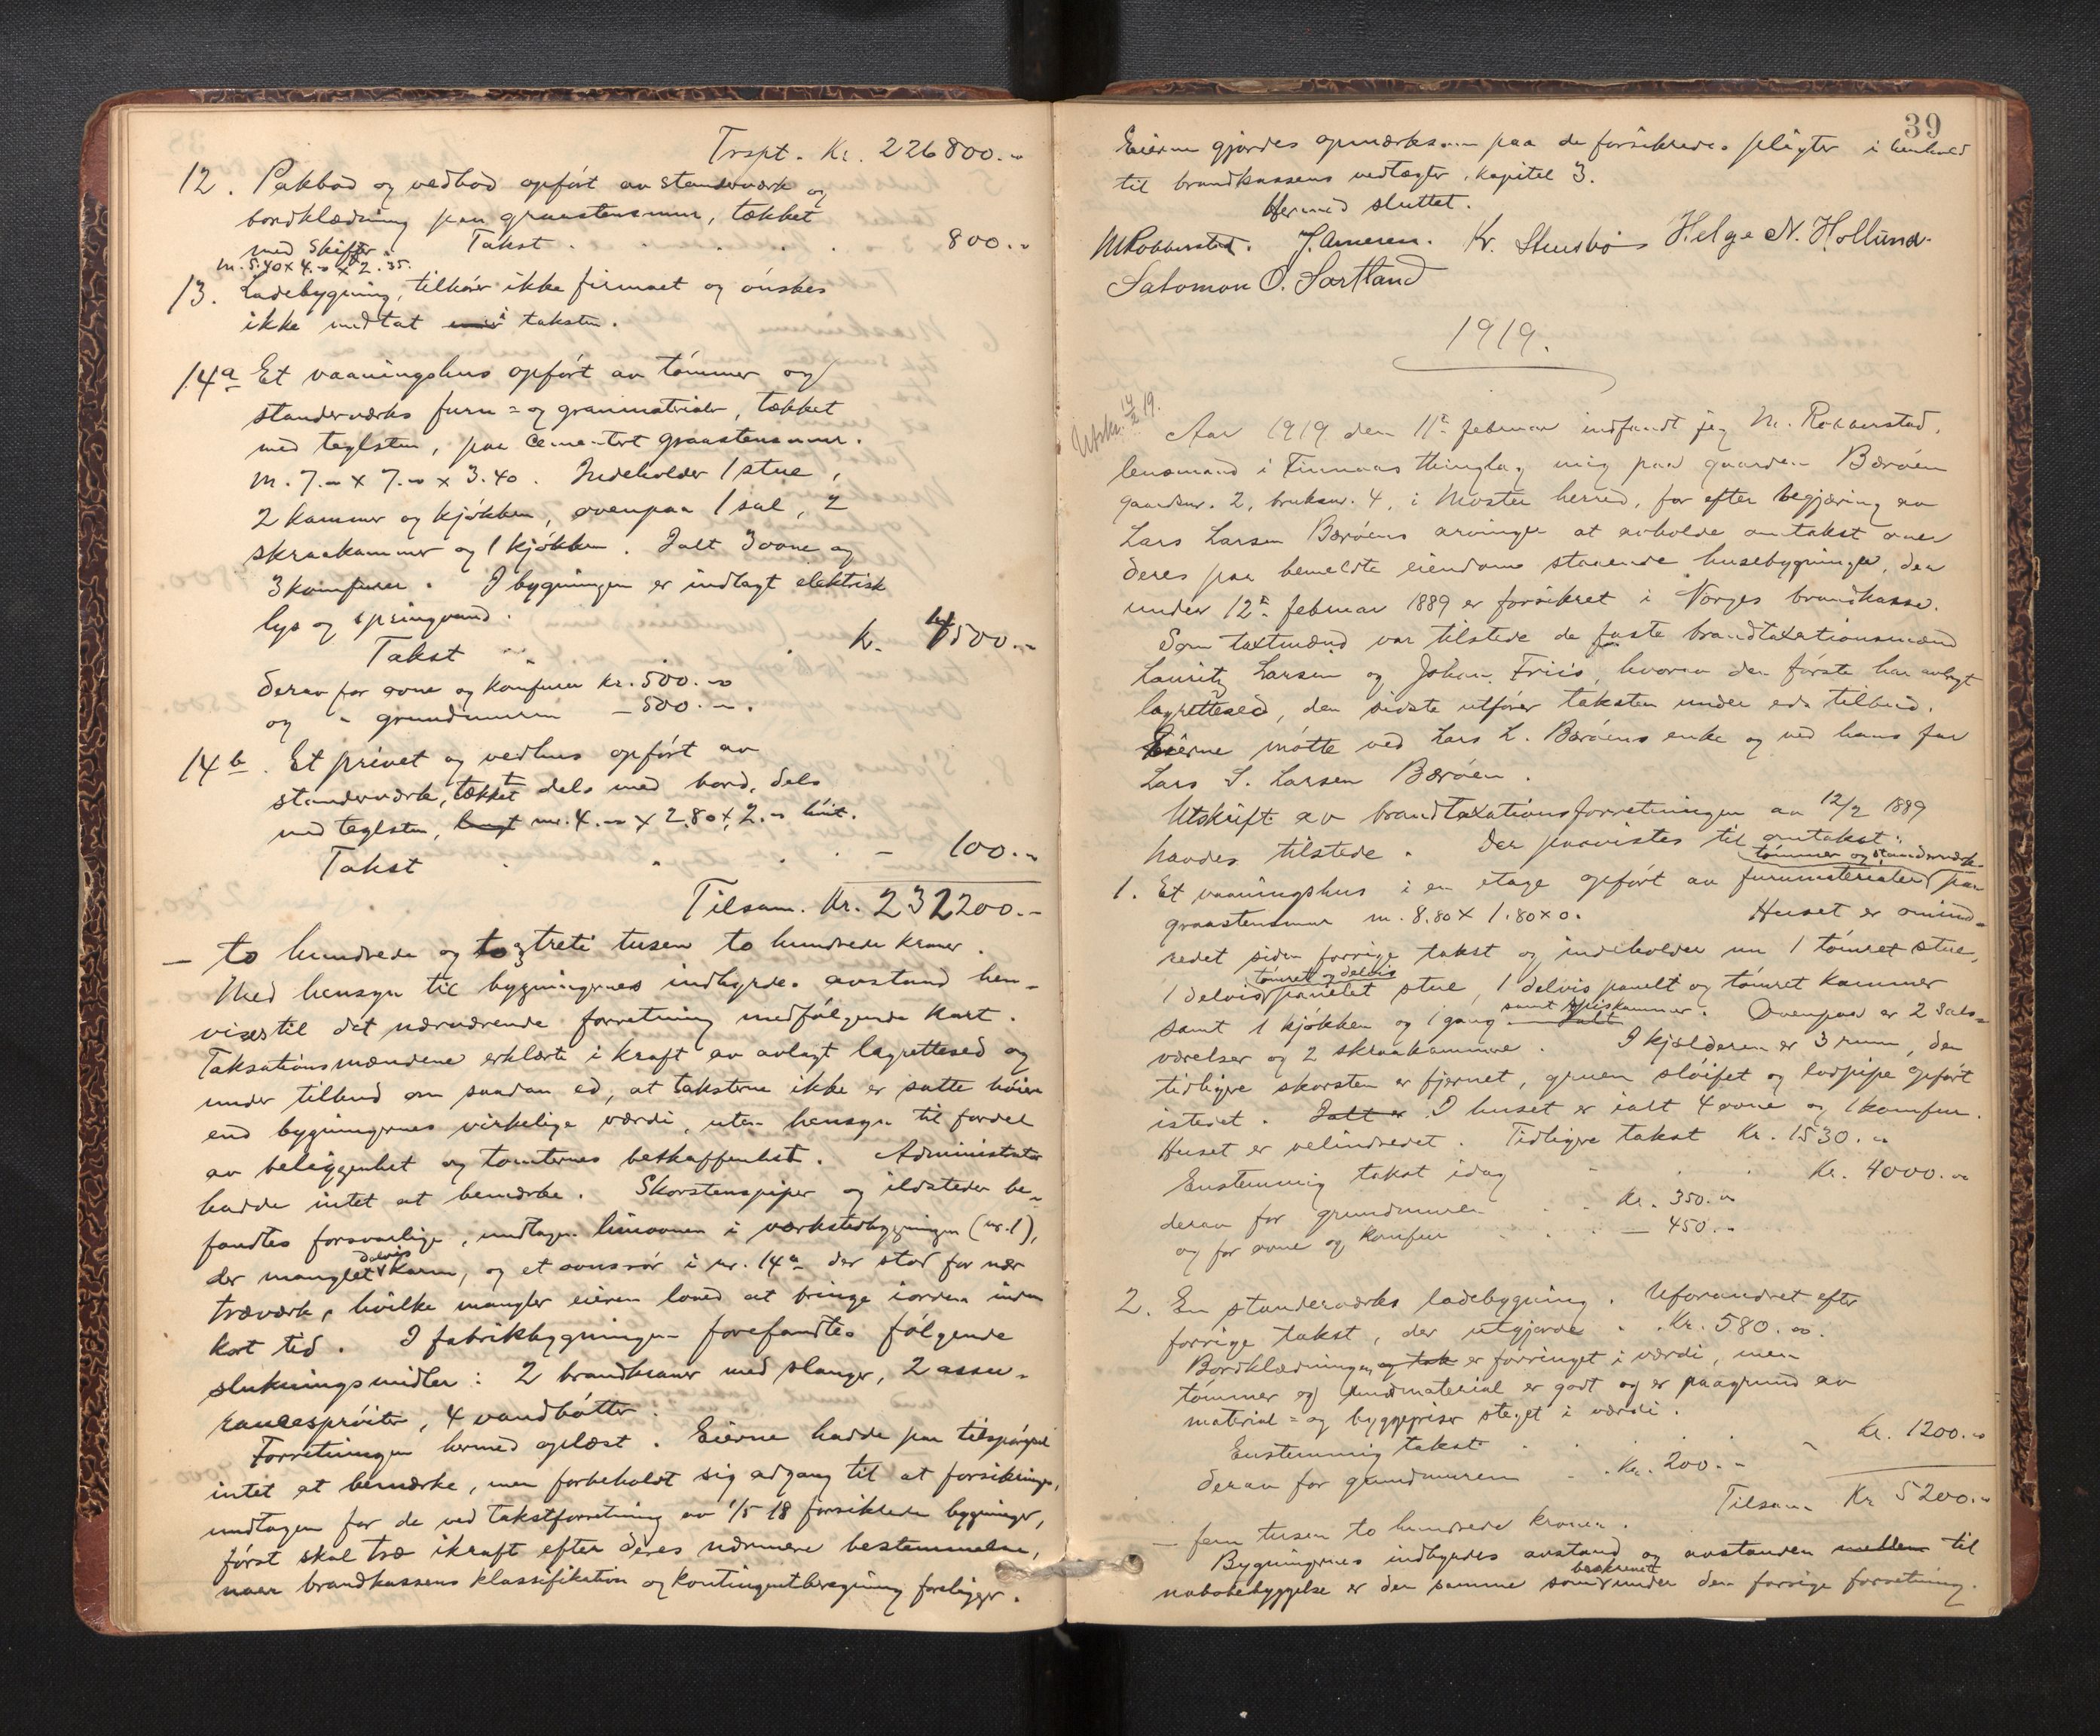 Trspt. Kr. 226800.-
12. Pakbod og vedbod opført av standerværk og
bordklædning paa graastensmur, tækket
med skiffer. Takst . . . . . 800.-
m. 5.40 x 4.- x 2.35.
13. Ladebygning, tilhører ikke firmaet og ønskes
ikke medtat i taksten.
14a Et vaaningshus opført av tømmer og
standerværks furu- og granmaterialer, tækket
med teglsten, paa cementert graastensmur.
m. 7.- x 7.- x 3.40. Indeholder 1 stue,
2 kammer og kjøkken, ovenpaa 1 sal, 2
skraakammer og 1 kjøkken. Ialt 3 ovne og
3 komfurer. I bygningen er indlagt elektrisk
lys og springvand.
Takst . . . k. 4500.-
Derav for ovne og komfurer kr. 500.-
og " grundmuren - 500.-.
14b. Et privet og vedhus opført av
standerværk, tækket dels med bord, dels
med teglsten, m. 4.- x 2.80 x 2.- høit.
Takst . . . . - 100.-
Tilsam. Kr. 232200.-
- to hundrede og to og treti tusen to hundrede kroner.
Med hensyn til bygningernes indbyrdes avstand hen-
vises til det nærværende forretning medfølgende kart.
Taksationsmændene erklærte i kraft av avlagt lagrettesed og
under tilbud om saadan ed, at taksterne ikke er satte høiere
end bygningernes virkelige værdi, uten hensyn til fordel
av beliggenhet og tomternes beskaffenhet. Administrator
hadde intet at bemærke. Skorstenspiper og ildsteder be-
fandtes forsvarlige, undtagen limovnen i værkstedbygningen (nr. 1),
der manglet delvis karm, og et ovnsrør i nr. 14a der stod for nær
træværk, hvilke mangler eieren loved at bringe iorden inden
kort tid. I fabrikbygningen forefandtes følgende
slukningsmidler: 2 brandkraner med slanger, 2 assu-
rancesprøiter, 4 vandbøtter.
Forretningen hermed oplæst. Eierne hadde paa tilspørgsel
intet at bemærke, men forbeholdt sig adgang til at forsikringen,
undtagen for de ved takstforretning av 1/5 18 forsikrede bygninger,
først skal træ ikraft efter deres nærmere bestemmelse,
naar brandkassens klassifikation og kontingentberegning foreligger.
39
Eierne gjordes opmerksom paa de forsikredes pligter i henhold
til brandkassens vedtægter, kapitel 3.
Hermed sluttet.
M Robberstad. J. Arnesen. Kr. Stensbø Helge N. Hollund.
Salomon O. Sortland
1919.
Utskr. 14/2 19.
Aar 1919 den 11te februar indfandt jeg M. Robberstad,
lensmand i Finnaas thinglag mig paa gaarden Bærøen
gaardsnr. 2, bruksnr. 4, i Moster herred, for efter begjæring av
Lars Larsen Bærøens arvinger at avholde omtakst over
deres paa bemeldte eiendom staaende husebygninger, der
under 12te februar 1889 er forsikret i Norges brandkasse.
Som takstmænd var tilstede de faste brandtaxationsmænd
Lauritz Larsen og Johan Friis, hvorav den første har avlagt
lagrettesed, den sidste utfører taksten under eds tilbud.
Eierne møtte ved Lars L. Bærøens enke og ved hans far
Lars S. Larsen Bærøen.
Utskrift av brandtaxationsforretningen av 12/2 1889
havdes tilstede. Der paavistes til omtakst:
tømmer og standerværk-
1. Et vaaningshus i en etage opført av furumaterialer paa
graastensmur m. 8.80 x 1.80 x 0. Huset er omind-
redet siden forrige takst og indeholder nu 1 tømret stue,
tømret og delvis
1 delvis panelet stue, 1 delvis panelt og tømret kammer
samt spiskammer.
samt 1 kjøkken og 1 gang Ialt Ovenpaa er 2 sals-
værelser og 2 skraakammere. I kjælderen er 3 rum, den
tidligere skorsten er fjernet, gruen sløifet og lodpipe opført
istedet. Ialt er I huset er ialt 4 ovne og 1 komfur.
Huset er velindredet. Tidligere takst Kr. 1530.-
Enstemmig takst idag . . . Kr. 4000.-
derav for grundmuren . . Kr. 350.-
og for ovne og komfur . . . - 450.-
2. En standerværks ladebygning. Uforandret efter
forrige takst, der utgjorde . Kr. 580.-.
Bordklædningen og tak er forringet i værdi, men
tømmer og material er godt og er paagrund av
material- og byggepriser steget i værdi.
Enstemmig takst . . . . Kr. 1200.-
derav for grundmuren . . Kr. 200.-
Tilsam. Kr 5200.-
- fem tusen to hundrede kroner.
Bygningernes indbyrdes avstand og avstanden mellem til
beskrevet
nabobebyggelse er den samme som under den forrige forretning.